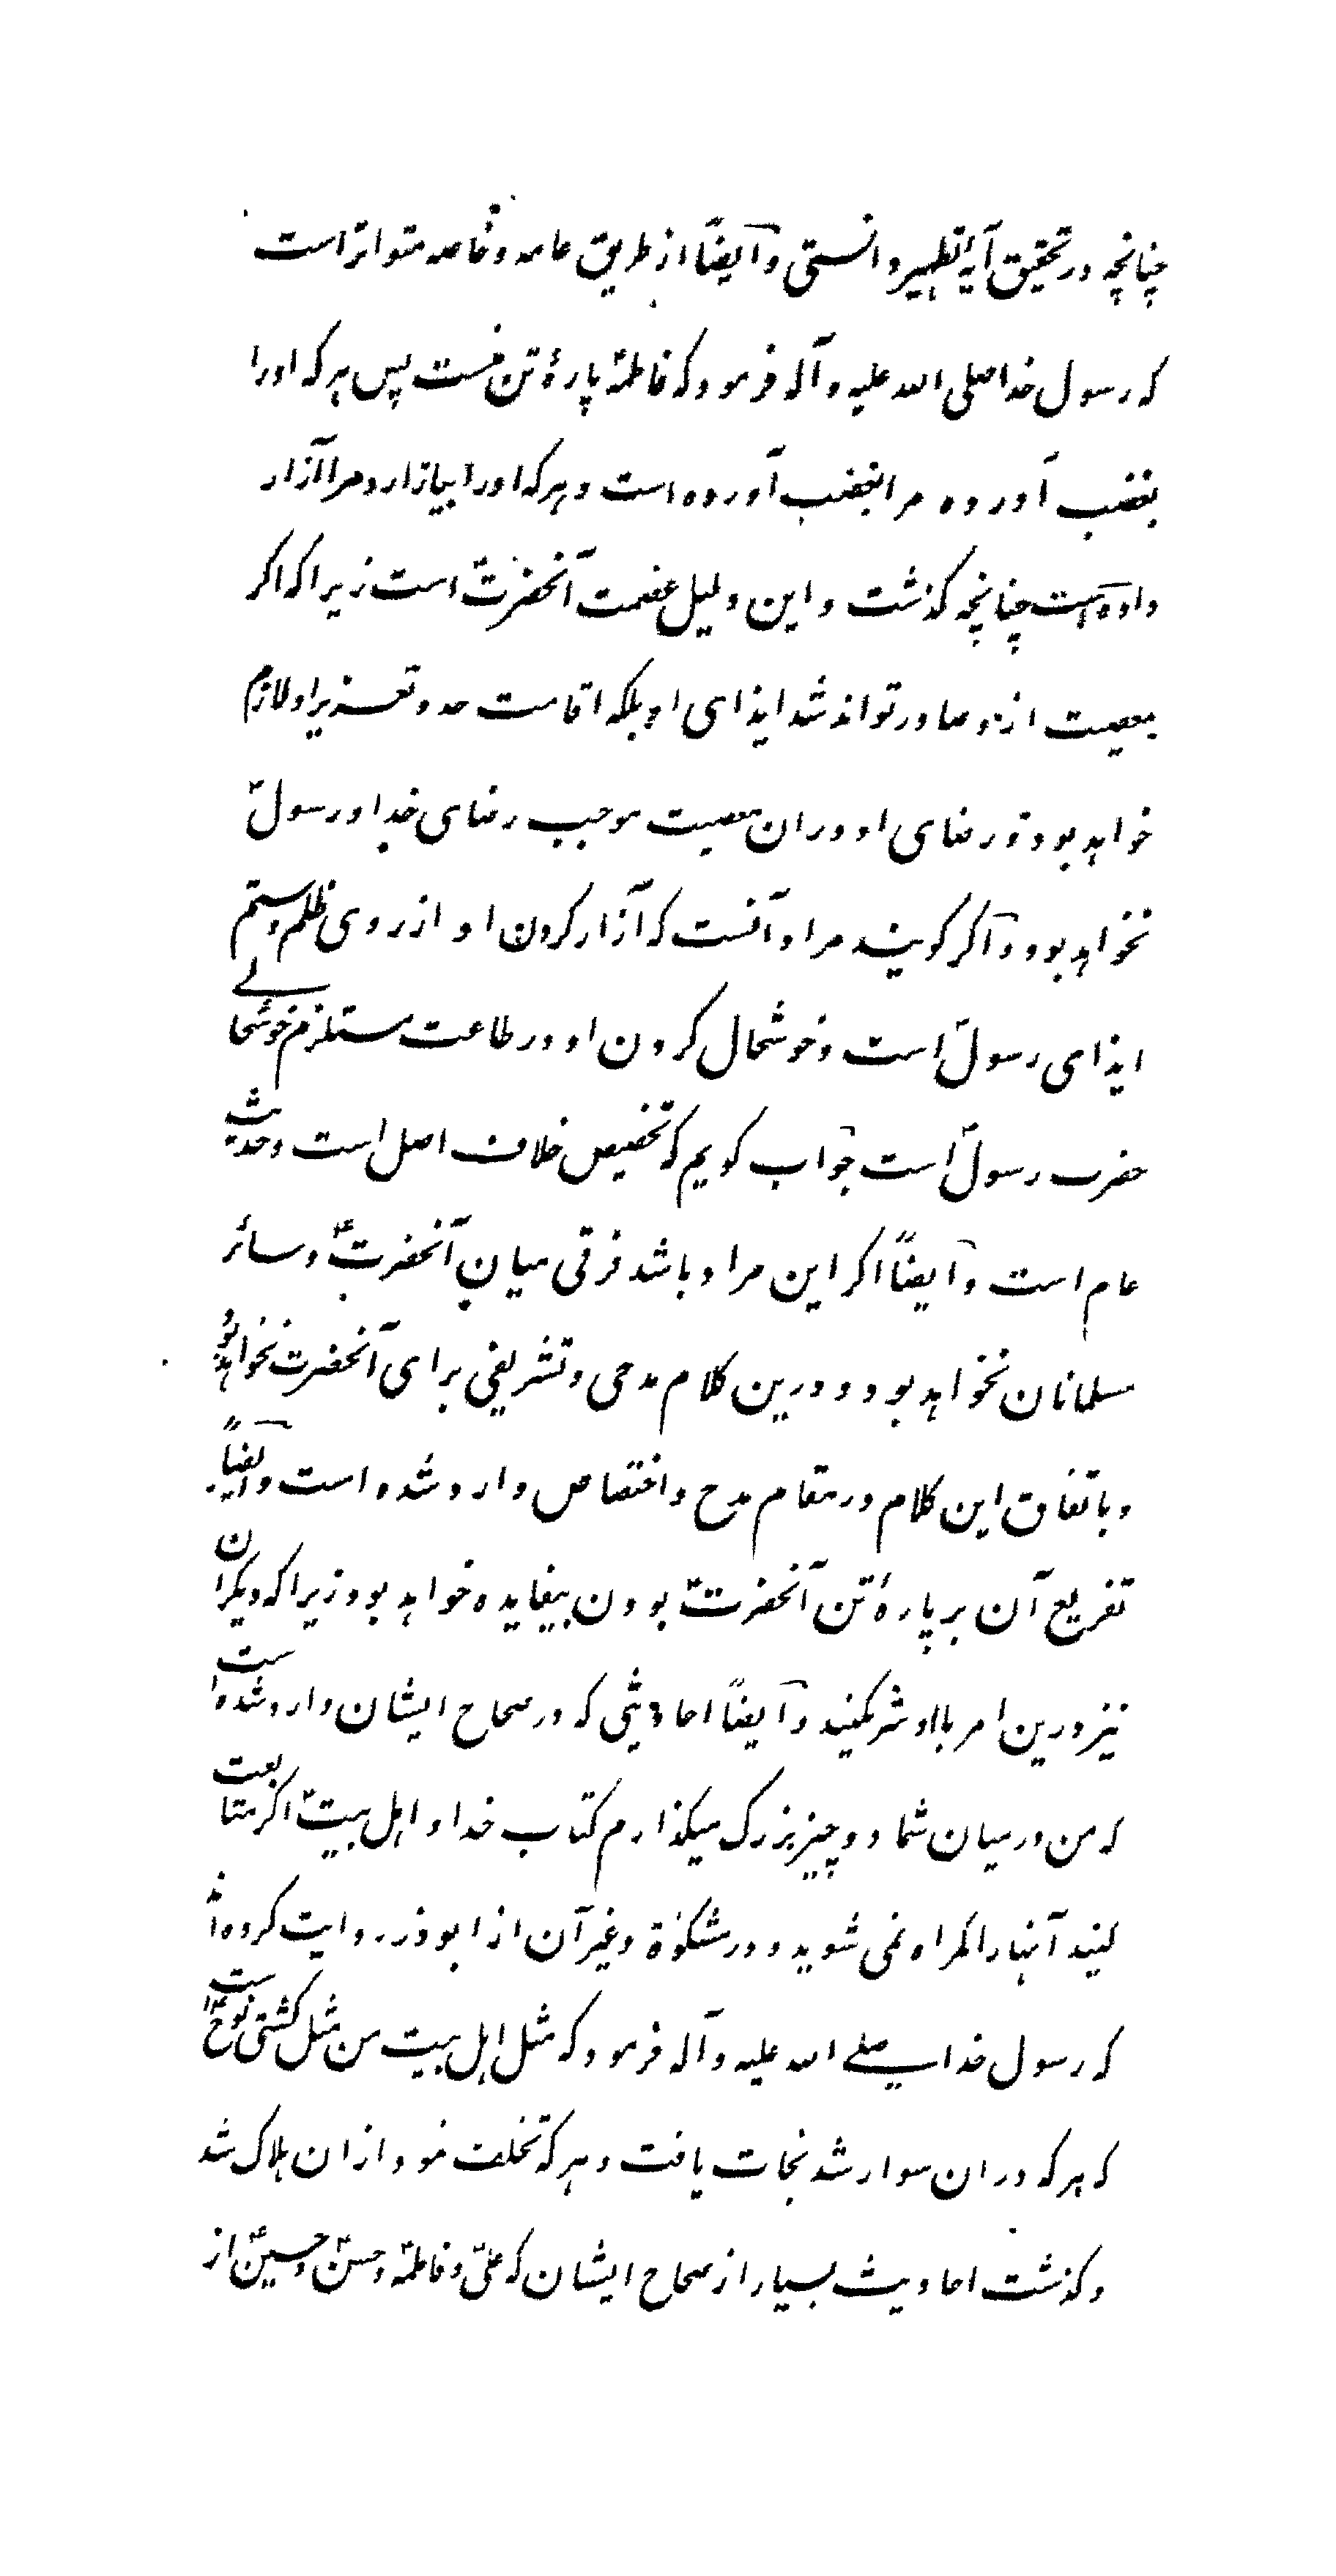 چنانچه در تحقیق آیه تطهیر دانستی و ایضاً از طریق عامه و خاصه متواتر است
که رسول خدا صلی الله علیه و آله فرمود که فاطمهؑ پارهٔ تن منست پس هر که او را
بغضب آورده مرا بغضب آورده است و هر که او را بیازارد مرا آزار
داده است چنانچه گذشت و این دلیل عصمت آنحضرتؑ است زیرا که اگر
معصیت از و صادر تواند شد ایذای او بلکه اقامت حد و تعزیر او لازم
خواهد بود و رضای او در ان معصیت موجب رضای خدا و رسولؐ
نخواهد بود و اگر گویند مراد آنست که آزار کردن او از روی ظلم و ستم
ایذای رسولؐ است و خوشحال کردن او در طاعت مستلزم خوشحالے
حضرت رسولؐ است جواب گویم که تخصیص خلاف اصل است و حدیث
عام است و ایضاً اگر این مراد باشد فرقی میان آنحضرتؑ و سائر
مسلمانان نخواهد بود و درین کلام مدحی و تشریفی برای آنحضرت نخواهد بود
و باتفاق این کلام در مقام مدح و اختصاص وارد شده است و ایضاً
تفریع آن بر پارهٔ تن آنحضرتؐ بودن بیفایده خواهد بود زیرا که دیگران
نیز درین امر با او شریکند و ایضاً احادیثی که در صحاح ایشان وارد شده است
که من در میان شما دو چیز بزرگ میگذارم کتاب خدا و اهل بیتؑ اگر متابعت
کنید آنها را گمراه نمی شوید و در مشکوٰة و غیر آن از ابوذر روایت کرده اند
که رسول خدا صلے الله علیه و آله فرمود که مثل اهل بیت من مثل کشتی نوحؑ است
که هر که در ان سوار شد نجات یافت و هر که تخلف نمود از ان هلاک شد
و گذشت احادیث بسیار از صحاح ایشان که علیؑ و فاطمهؑ و حسنؑ و حسینؑ از